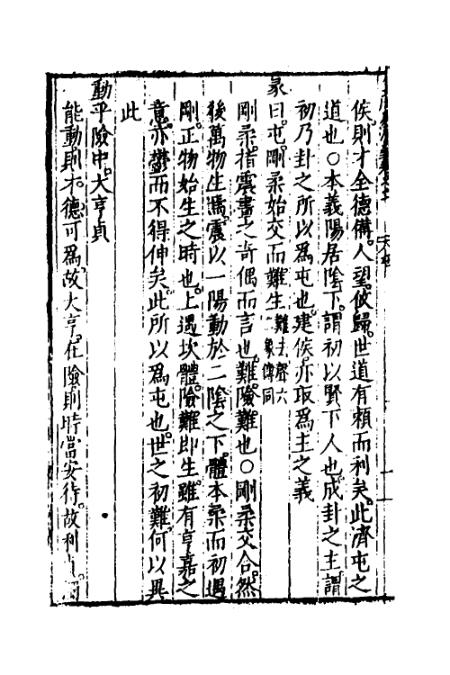 侯則才全德備人望攸歸世道有賴而利矣此濟屯之
道也○本義陽居陰下謂初以賢下人也成卦之主謂
初乃卦之所以為屯也建侯亦取為主之義
彖曰屯剛柔始交而難生難去聲六二象傳同
剛柔指震畫之奇偶而言也難險難也○剛柔交合然
後萬物生焉震以一陽動於二陰之下體本柔而初遇
剛正物始生之時也上遇坎體險難即生雖有亨嘉之
意亦鬱而不得伸矣此所以為屯也世之初難何以異
此
動乎險中大亨貞
能動則才德可為故大亨在險則時當安待故利